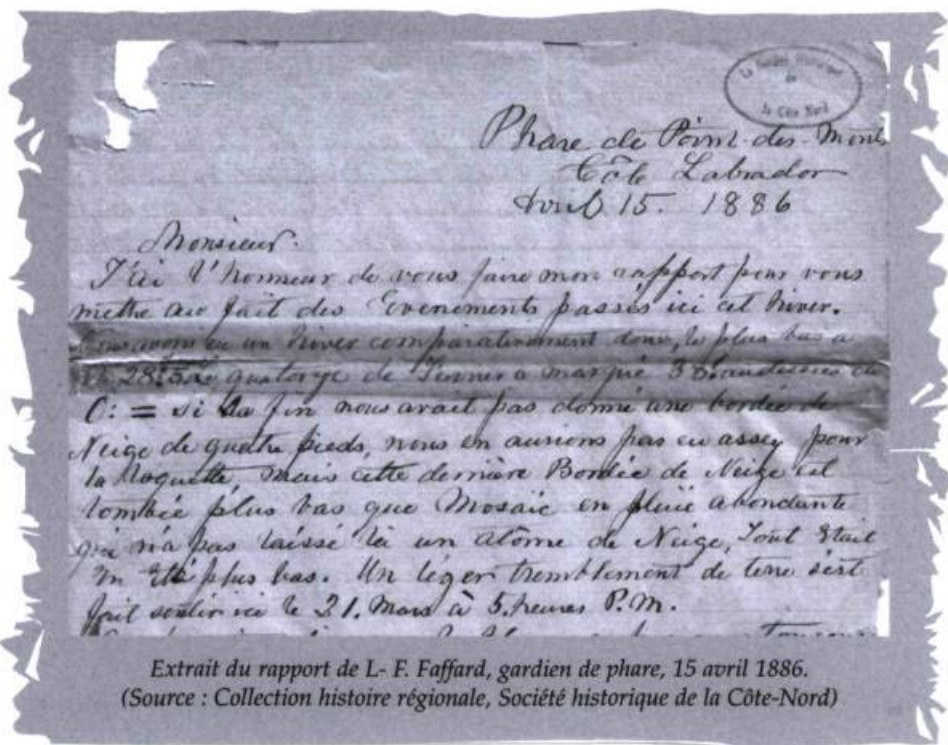 La Société Historique
de
la Côte Nord
Phare de Point-des-Monts
Côte Labrador
Avril 15. 1886
Monsieur.
J'ai l'honneur de vous faire mon rapport pour vous
mettre au fait des Evenements passés ici cet hiver.
Nous avons eu un hiver comparativement doux, le plus bas a
28.5 le quatorze de Janvier a marqué au dessous du
0: = si la fin nous avait pas donné une bordée de
Neige de quatre pieds, nous en aurions pas eu assez pour
la Raquette, mais cette dernière Bordée de Neige est
tombée plus bas que Mosaïc en pluie abondante
qui n'a pas laissé là un atôme de Neige, Tout était
en Eté plus bas. Un léger tremblement de terre s'est
fait sentir ici le 21. Mars à 5. heures P.M.
Extrait du rapport de L- F. Faffard, gardien de phare, 15 avril 1886.
(Source : Collection histoire régionale, Société historique de la Côte-Nord)